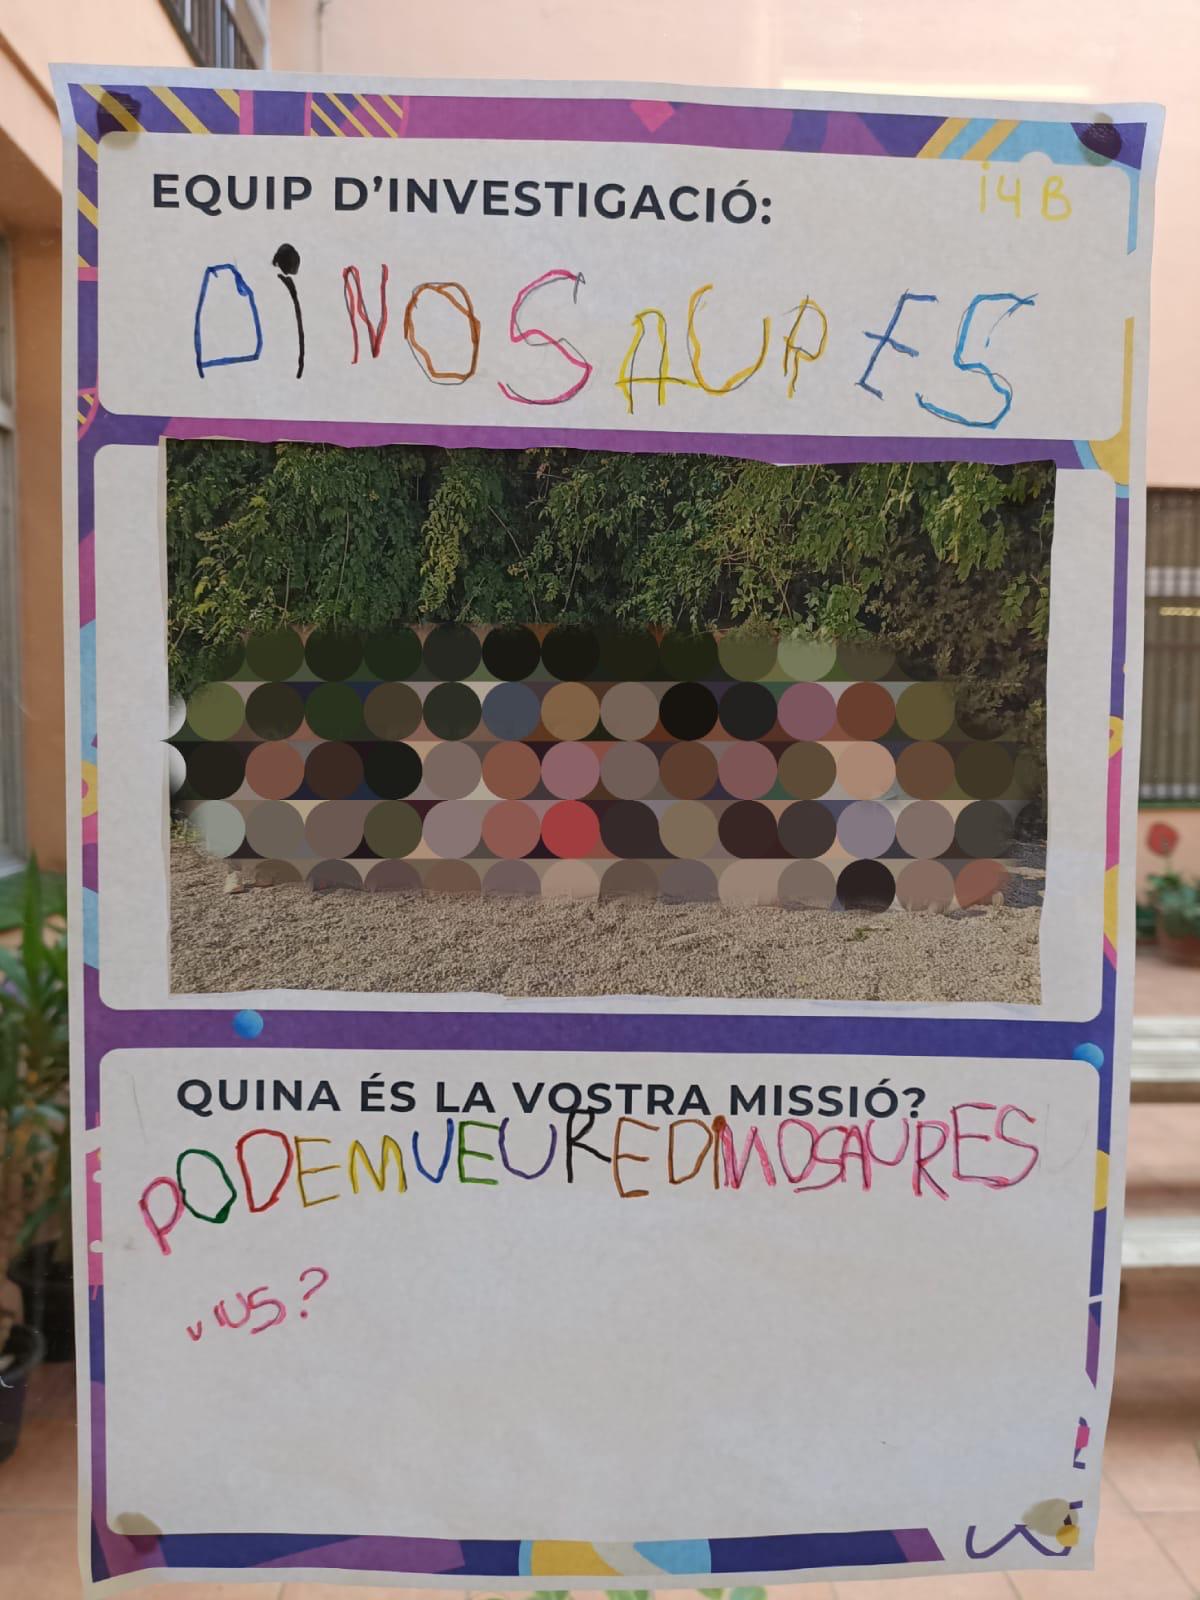 EQUIP D'INVESTIGACIÓ:
i4 B
DiNOSAURES
QUINA ÉS LA VOSTRA MISSIÓ?
PODEM VEURE DiNOSAURES
VIUS?